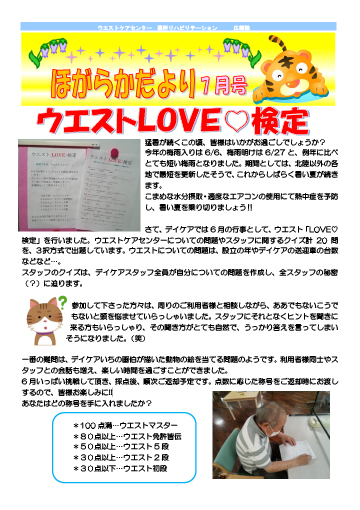 ウエストケアセンター　通所リハビリテーション　　広報誌
ほがらかだより7月号
ウエストLOVE♡検定
猛暑が続くこの頃、皆様はいかがお過ごしでしょうか？
今年の梅雨入りは 6/6、梅雨明けは 6/27 と、例年に比べ
とても短い梅雨となりました。期間としては、北陸以外の各
地で最短を更新したそうで、これからしばらく暑い夏が続き
ます。
こまめな水分摂取・適度なエアコンの使用にて熱中症を予防
し、暑い夏を乗り切りましょう!!
さて、デイケアでは 6 月の行事として、ウエスト「LOVE♡
検定」を行いました。ウエストケアセンターについての問題やスタッフに関するクイズ計 20 問
を、3択方式で出題しています。ウエストについての問題は、設立の年やデイケアの送迎車の台数
などなど…。
スタッフのクイズは、デイケアスタッフ全員が自分についての問題を作成し、全スタッフの秘密
（？）に迫ります。
参加して下さった方々は、周りのご利用者様と相談しながら、ああでもないこうで
もないと頭を悩ませていらっしゃいました。スタッフにそれとなくヒントを聞きに
来る方もいらっしゃり、その聞き方がとても自然で、うっかり答えを言ってしまい
そうになりました。（笑）
一番の難問は、デイケアいちの画伯が描いた動物の絵を当てる問題のようです。利用者様同士やス
タッフとの会話も増え、楽しい時間を過ごすことができました。
6 月いっぱい挑戦して頂き、採点後、順次ご返却予定です。点数に応じた称号をご返却時にお渡し
するので、皆様お楽しみに!!
あなたはどの称号を手に入れましたか？
＊100 点満…ウエストマスター
＊８０点以上…ウエスト免許皆伝
＊５０点以上…ウエスト 5 段
＊３０点以上…ウエスト 2 段
＊３０点以下…ウエスト初段